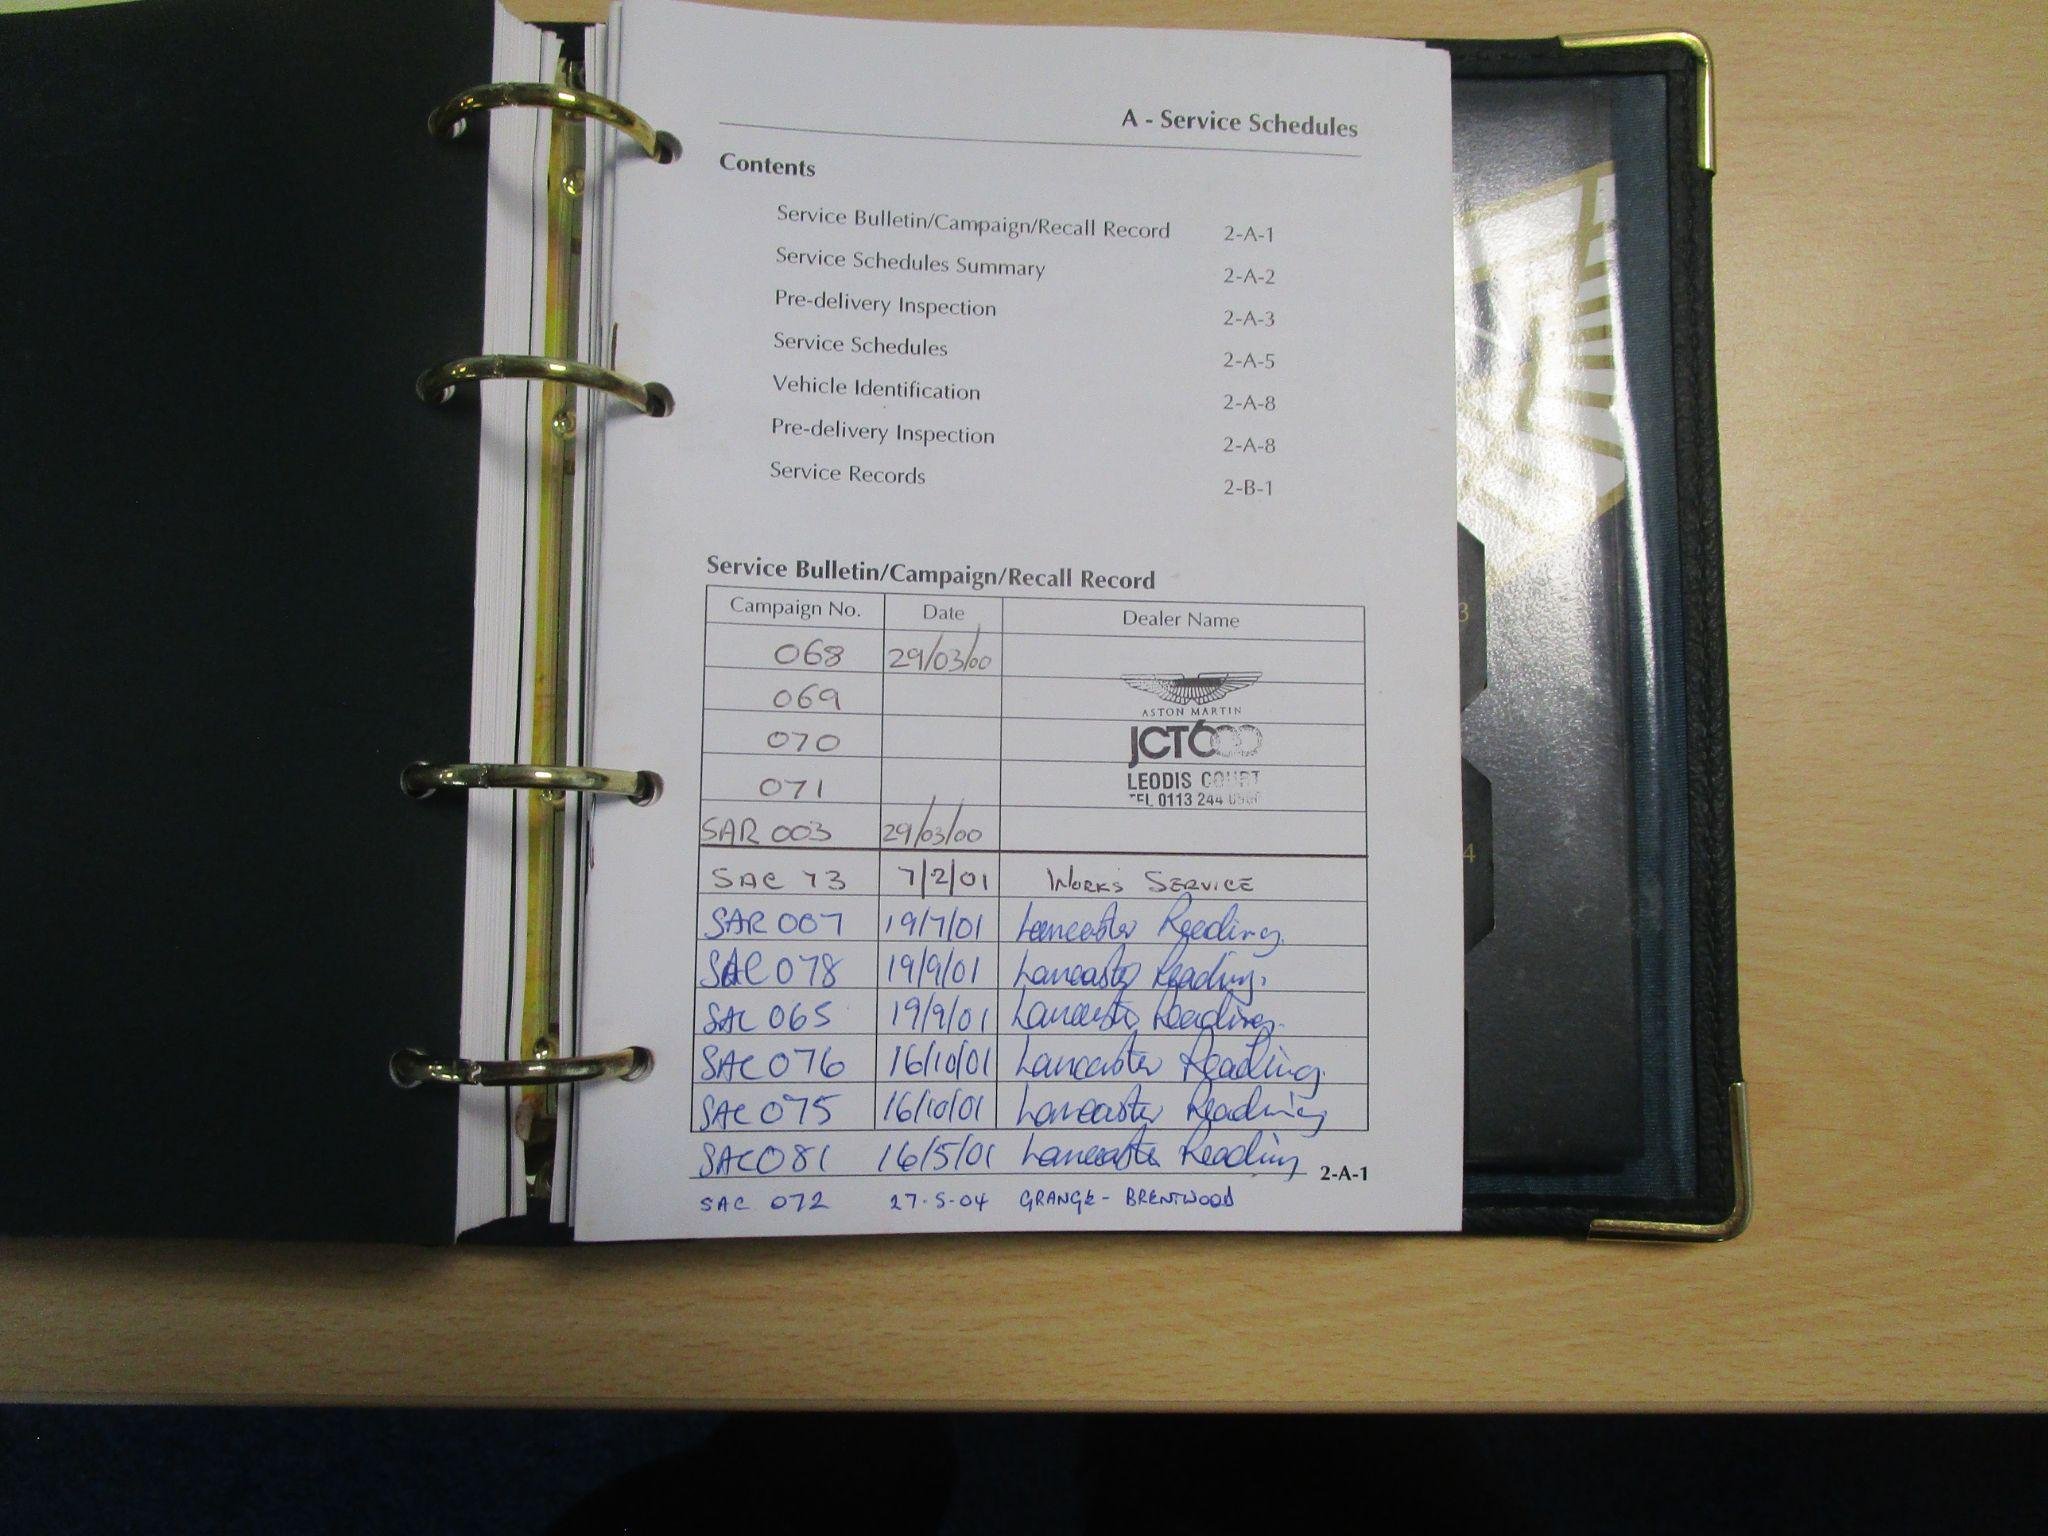 A - Service Schedules
Contents
Service Bulletin/Campaign/Recall Record 2-A-1
Service Schedules Summary 2-A-2
Pre-delivery Inspection 2-A-3
Service Schedules 2-A-5
Vehicle Identification 2-A-8
Pre-delivery Inspection 2-A-8
Service Records 2-B-1
Service Bulletin/Campaign/Recall Record
Campaign No. Date Dealer Name
068 29/03/00
069
ASTON MARTIN
070 JCT600
071 LEODIS COURT
TEL 0113 244
SAR 003 29/03/00
SAC 73 7/2/01 WORKS SERVICE
SAR 007 19/7/01 Lancaster Reading.
SAC 078 19/9/01 Lancaster Reading.
SAC 065 19/9/01 Lancaster Reading.
SAC 076 16/10/01 Lancaster Reading.
SAC 075 16/10/01 Lancaster Reading
SAC 081 16/5/01 Lancaster Reading
2-A-1
SAC 072 27-5-04 GRANGE - BRENTWOOD
3
4